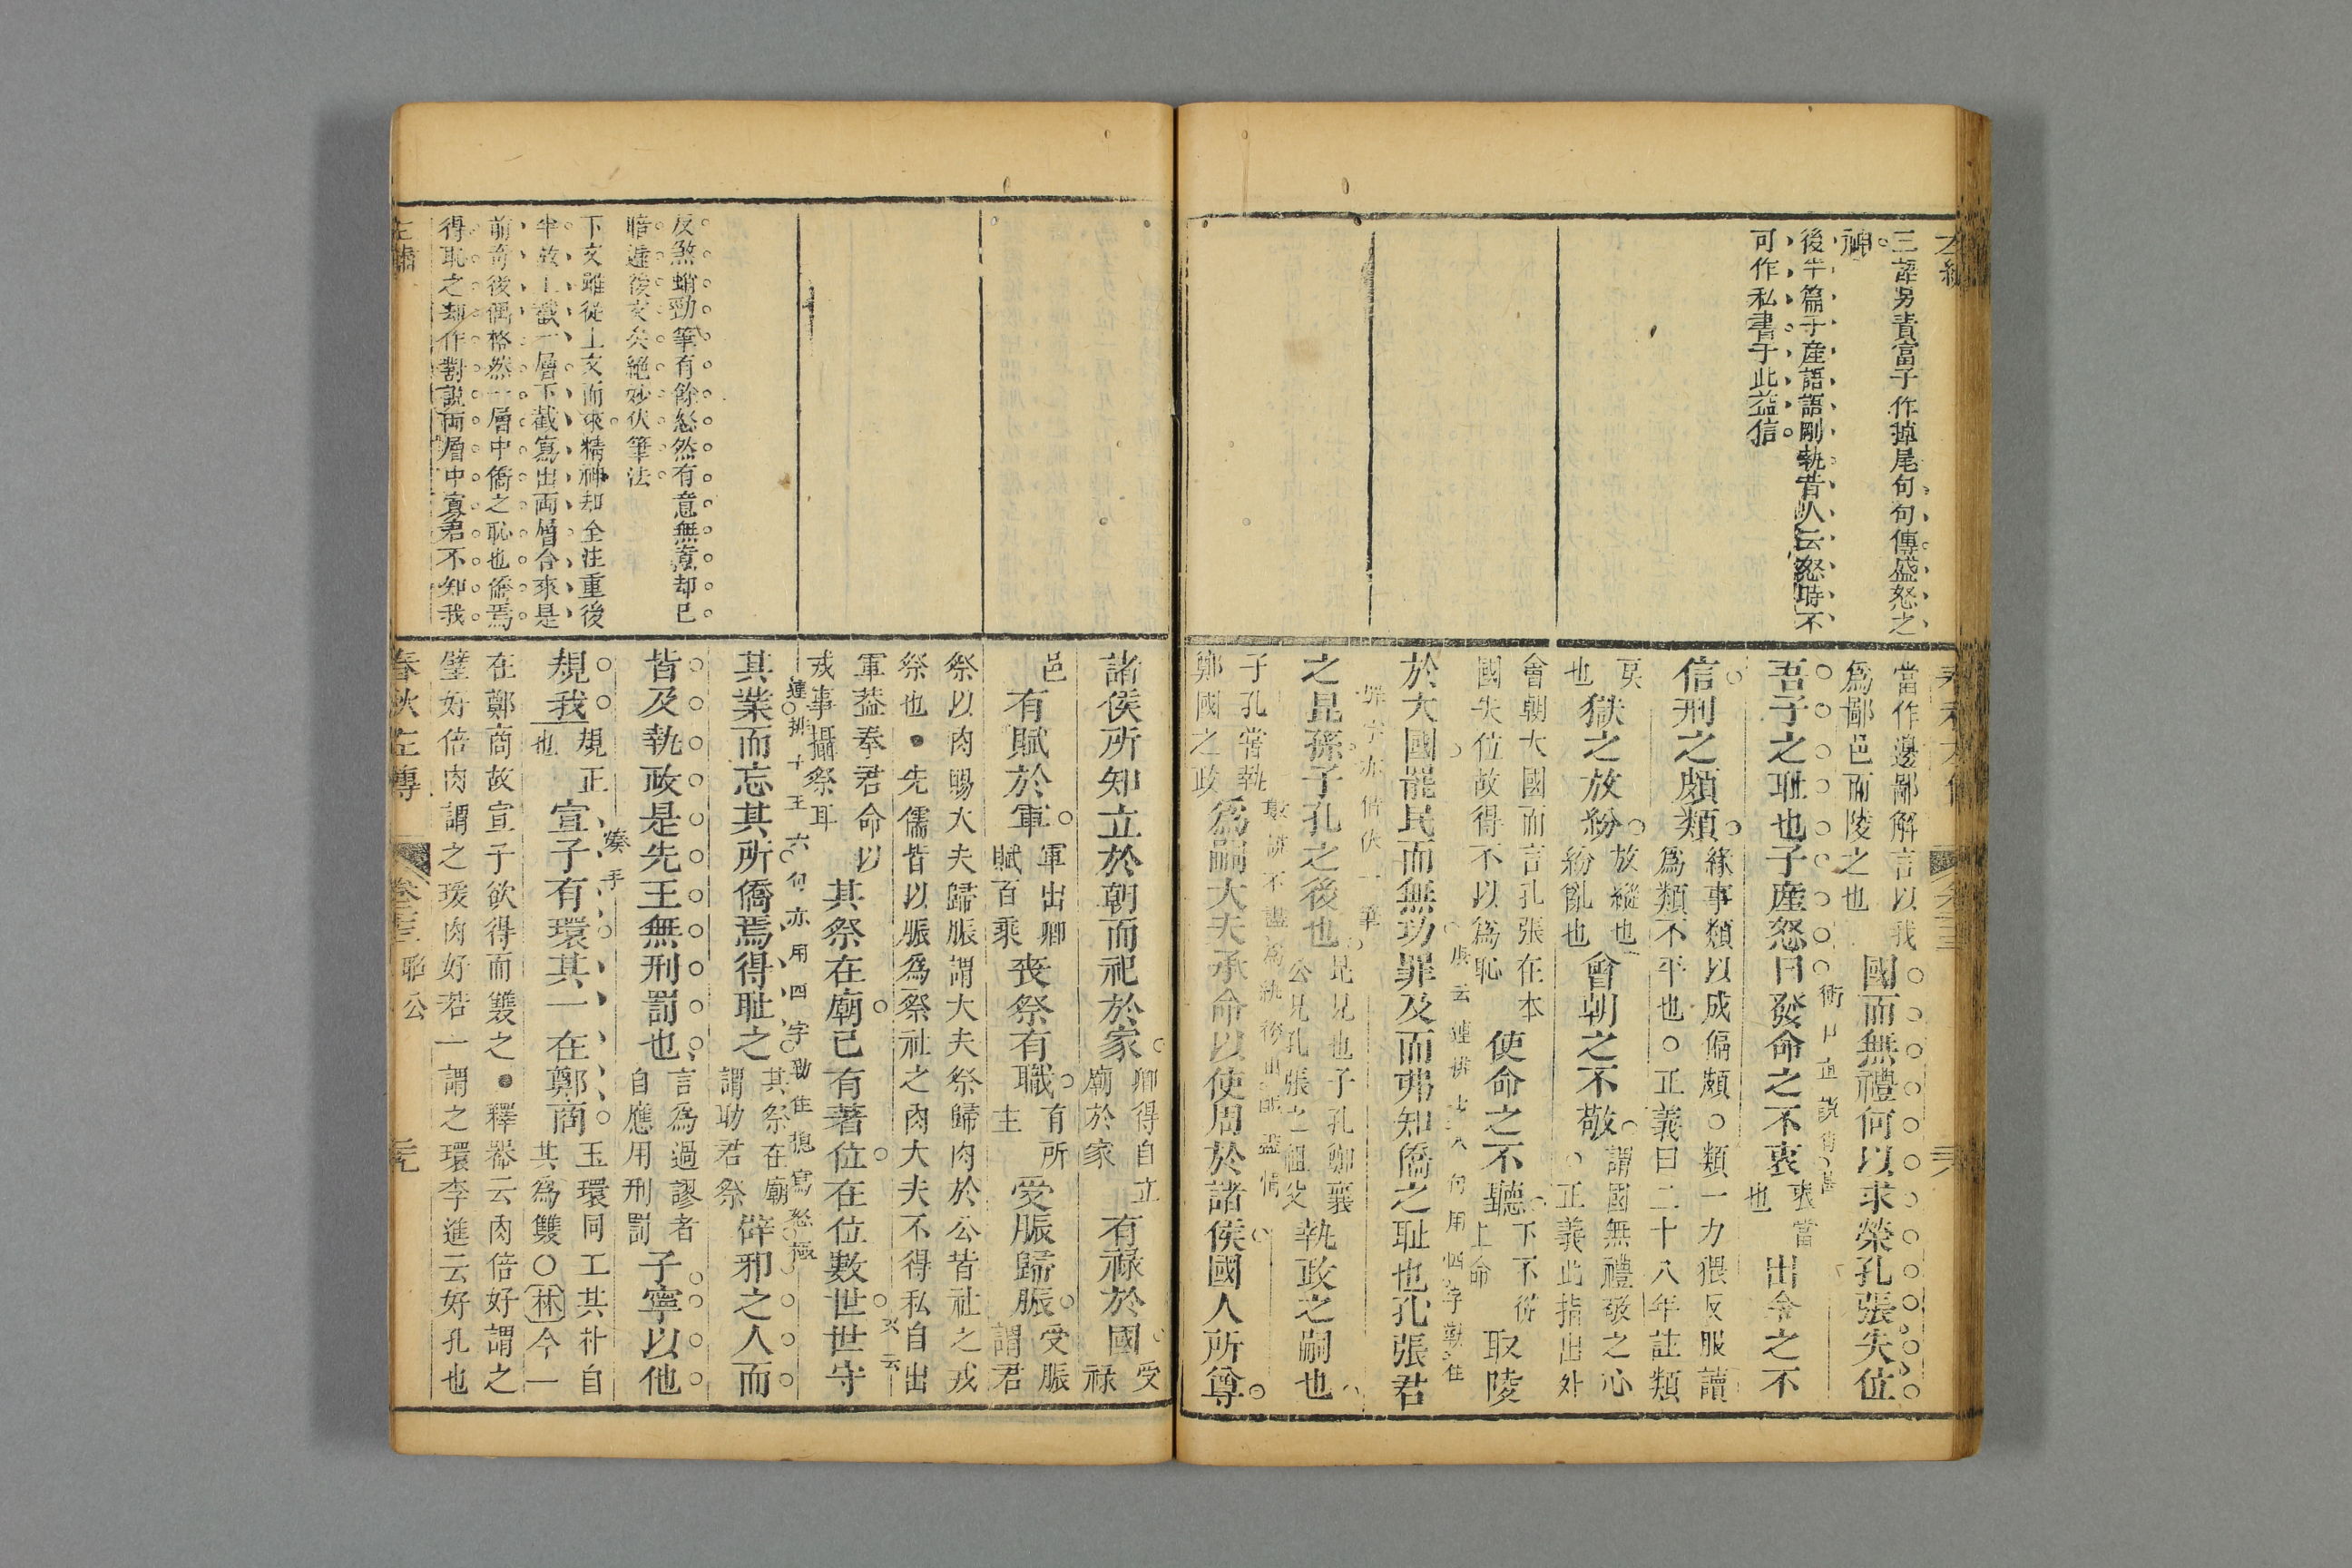 三語另責富子作掉尾句句傳盛怒之
神
後半篇子產語語剛執昔人云怒時不
可作私書于此益信
當作邊鄙解言以我
爲鄙邑而陵之也
國而無禮何以求榮孔張失位
吾子之耻也子產怒曰發命之不衷
衷當
也
出令之不
信刑之頗類
緣事類以成偏頗○類一力猥反服讀
爲類不平也○正義曰二十八年註類
戾
也
獄之放紛
放縱也
紛亂也
會朝之不敬
謂國無禮敬之心
○正義此指出外
會朝大國而言孔張在本
國失位故得不以爲恥
使命之不聽
下不從
上命
取陵
於大國罷民而無功罪及而弗知僑之耻也孔張君
之昆孫子孔之後也
昆兄也子孔鄭襄
公兄孔張之祖父
執政之嗣也
子孔嘗執
鄭國之政
爲嗣大夫承命以使周於諸侯國人所尊
諸侯所知立於朝而祀於家
卿得自立
廟於家
有祿於國
受
祿
邑
有賦於軍
軍出卿
賦百乘
喪祭有職
有所
主
受脤歸脤
受脤
謂君
祭以肉賜大夫歸脤謂大夫祭歸肉於公皆社之戎
祭也●先儒皆以脤爲祭社之肉大夫不得私自出
軍葢奉君命以
戎事攝祭耳
其祭在廟已有著位在位數世世守
其業而忘其所僑焉得耻之
其祭在廟
謂助君祭
辟邪之人而
連排十王六句亦用四字勒住摠寫怒極
皆及執政是先王無刑罰也
言爲過謬者
自應用刑罰
子寧以他
規我
規正
也
宣子有環其一在鄭商
玉環同工其朴自
其爲雙○林今一
在鄭商故宣子欲得而雙之●釋器云肉倍好謂之
璧好倍肉謂之瑗肉好若一謂之環李巡云好孔也
反煞蛸勁筆有餘怒然有意無意却已
暗遞後文矣絕妙伏筆法
下文雖從上文而來精神却全注重後
半故上截一層下截寫出兩層合來是
前奇後偶格然一層中僑之恥也僑焉
得恥之却作對說兩層中寡君不知我
春秋左傳
卷三
昭公